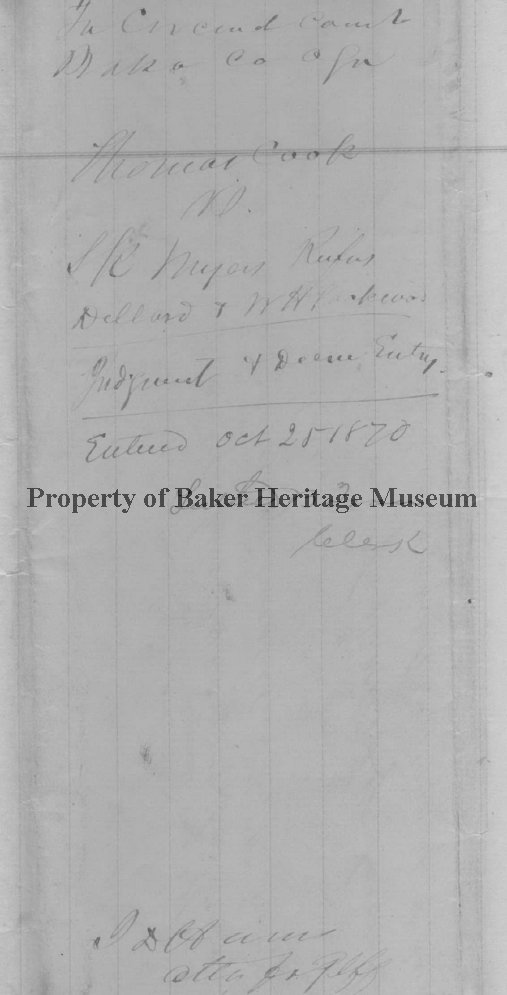 In Circuit Court
Baker Co Ogn
Thomas Cook
vs.
S K Myers Rufus
Dillard & W H Packwood
Judgment & Decree Entry
Entered Oct 25 1870
Property of Baker Heritage Museum
Clerk
I D
atty for Plff